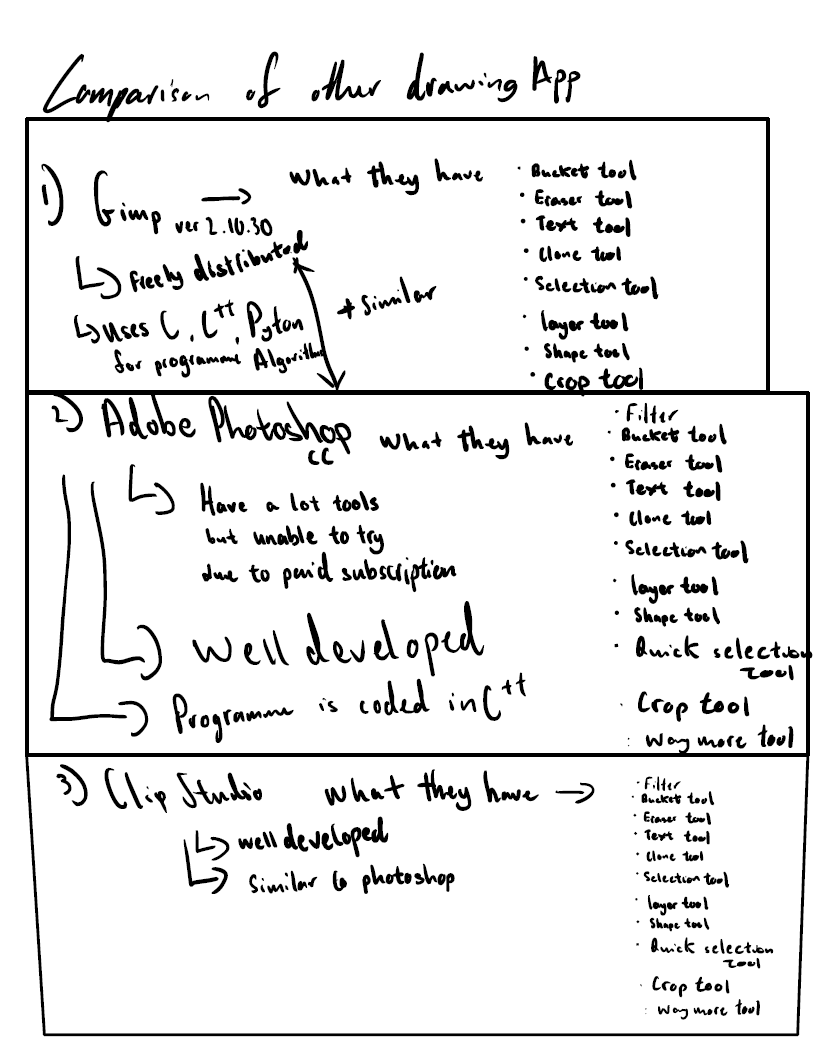 Comparison of other drawing App
1) Gimp ver 2.10.30 → what they have
↳ freely distributed
* Similar
↳ uses C, C++, Pyton
for programme Algorithm
· Bucket tool
· Eraser tool
· Text tool
· Clone tool
· Selection tool
· layer tool
· Shape tool
· Crop tool
2) Adobe Photoshop CC what they have
↳ Have a lot tools
but unable to try
due to paid subscription
well developed
Programme is coded in C++
· Filter
· Bucket tool
· Eraser tool
· Text tool
· Clone tool
· Selection tool
· layer tool
· Shape tool
· Quick selection
tool
· Crop tool
: Way more tool
3) Clip Studio what they have →
↳ well developed
↳ Similar to photoshop
· Filter
· Bucket tool
· Eraser tool
· Text tool
· Clone tool
· Selection tool
· layer tool
· Shape tool
· Quick selection
tool
· Crop tool
: Way more tool